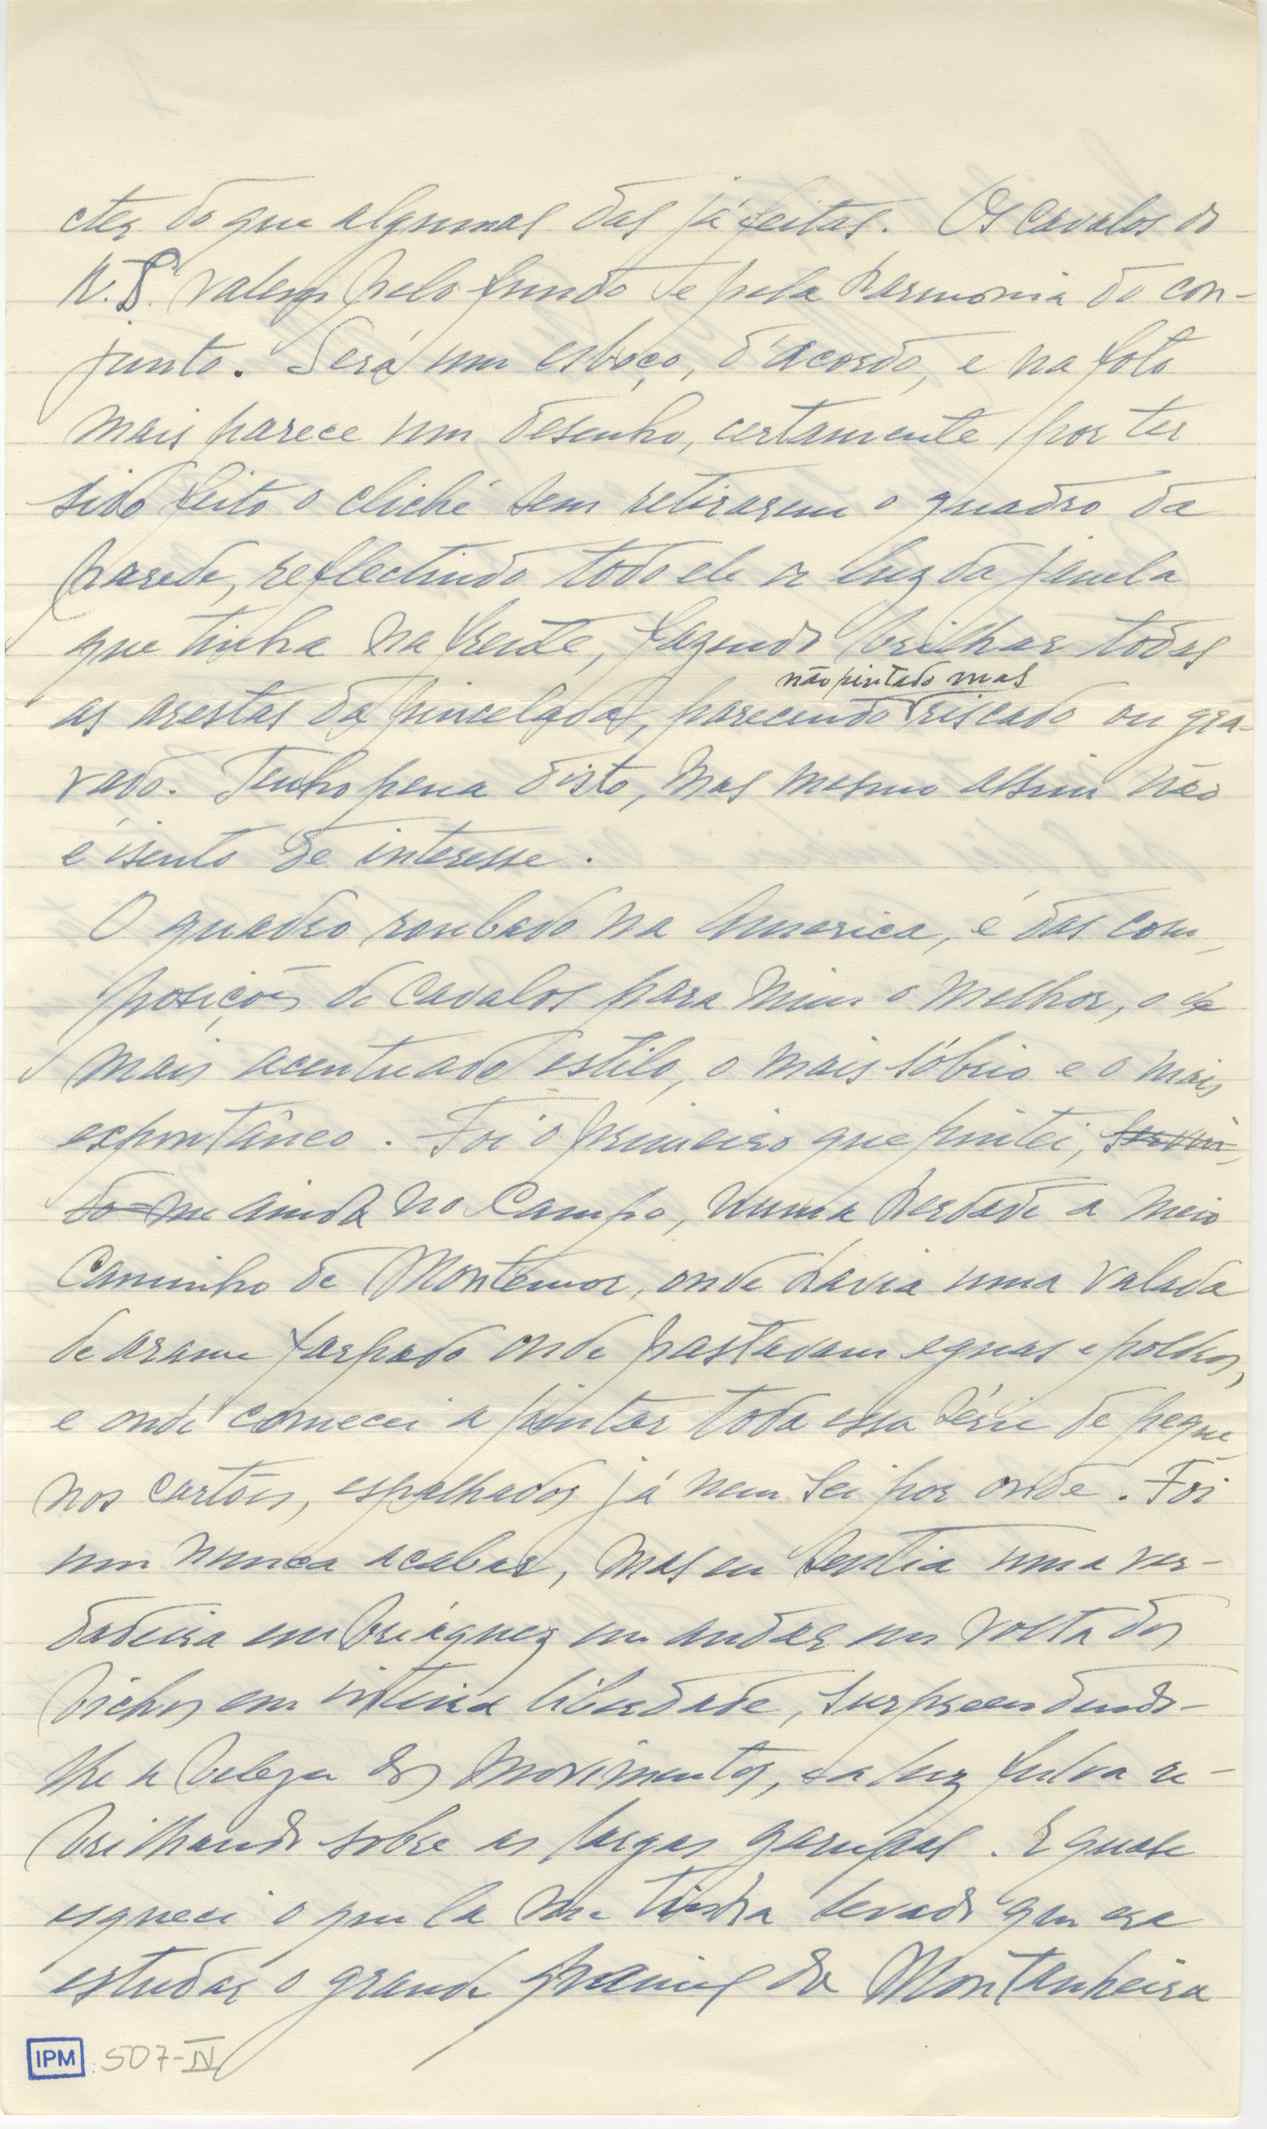 cter do que algumas das já feitas. Os cavalos do
valem pelo fundo e pela harmonia do con-
junto. Será um esboço, d'acordo, e na foto
mais parece um desenho, certamente por ter
sido feito o cliché sem retirarem o quadro da
parede, reflectindo todo ele a luz da janela
que tinha na frente, fazendo brilhar todas
não pintado mas
as arestas da pincelada, parecendo riscado ou gra-
vado. Tenho pena disto, mas mesmo assim não
é isento de interesse.
O quadro roubado na America, é das com-
posições de cavalos para mim o melhor, o de
mais acentuado estilo, o mais sóbrio e o mais
expontâneo. Foi o primeiro que pintei, servin-
do-me ainda no Campo, numa herdade a meio
caminho de Montemor, onde havia uma valada
de arame farpado onde pastavam eguas e poldros,
e onde comecei a pintar toda essa série de peque-
nos cartões, espalhados já nem sei por onde. Foi
um nunca acabar, mas eu sentia uma ver-
dadeira embriáguez em andar em volta dos
bichos em inteira liberdade, surpreendendo-
lhe a beleza dos movimentos, e a luz fulva re-
brilhando sobre as largas garupas. E quase
esqueci o que la me tinha levado que era
estudar o grande painel da Montanheira
IPM 507-IV